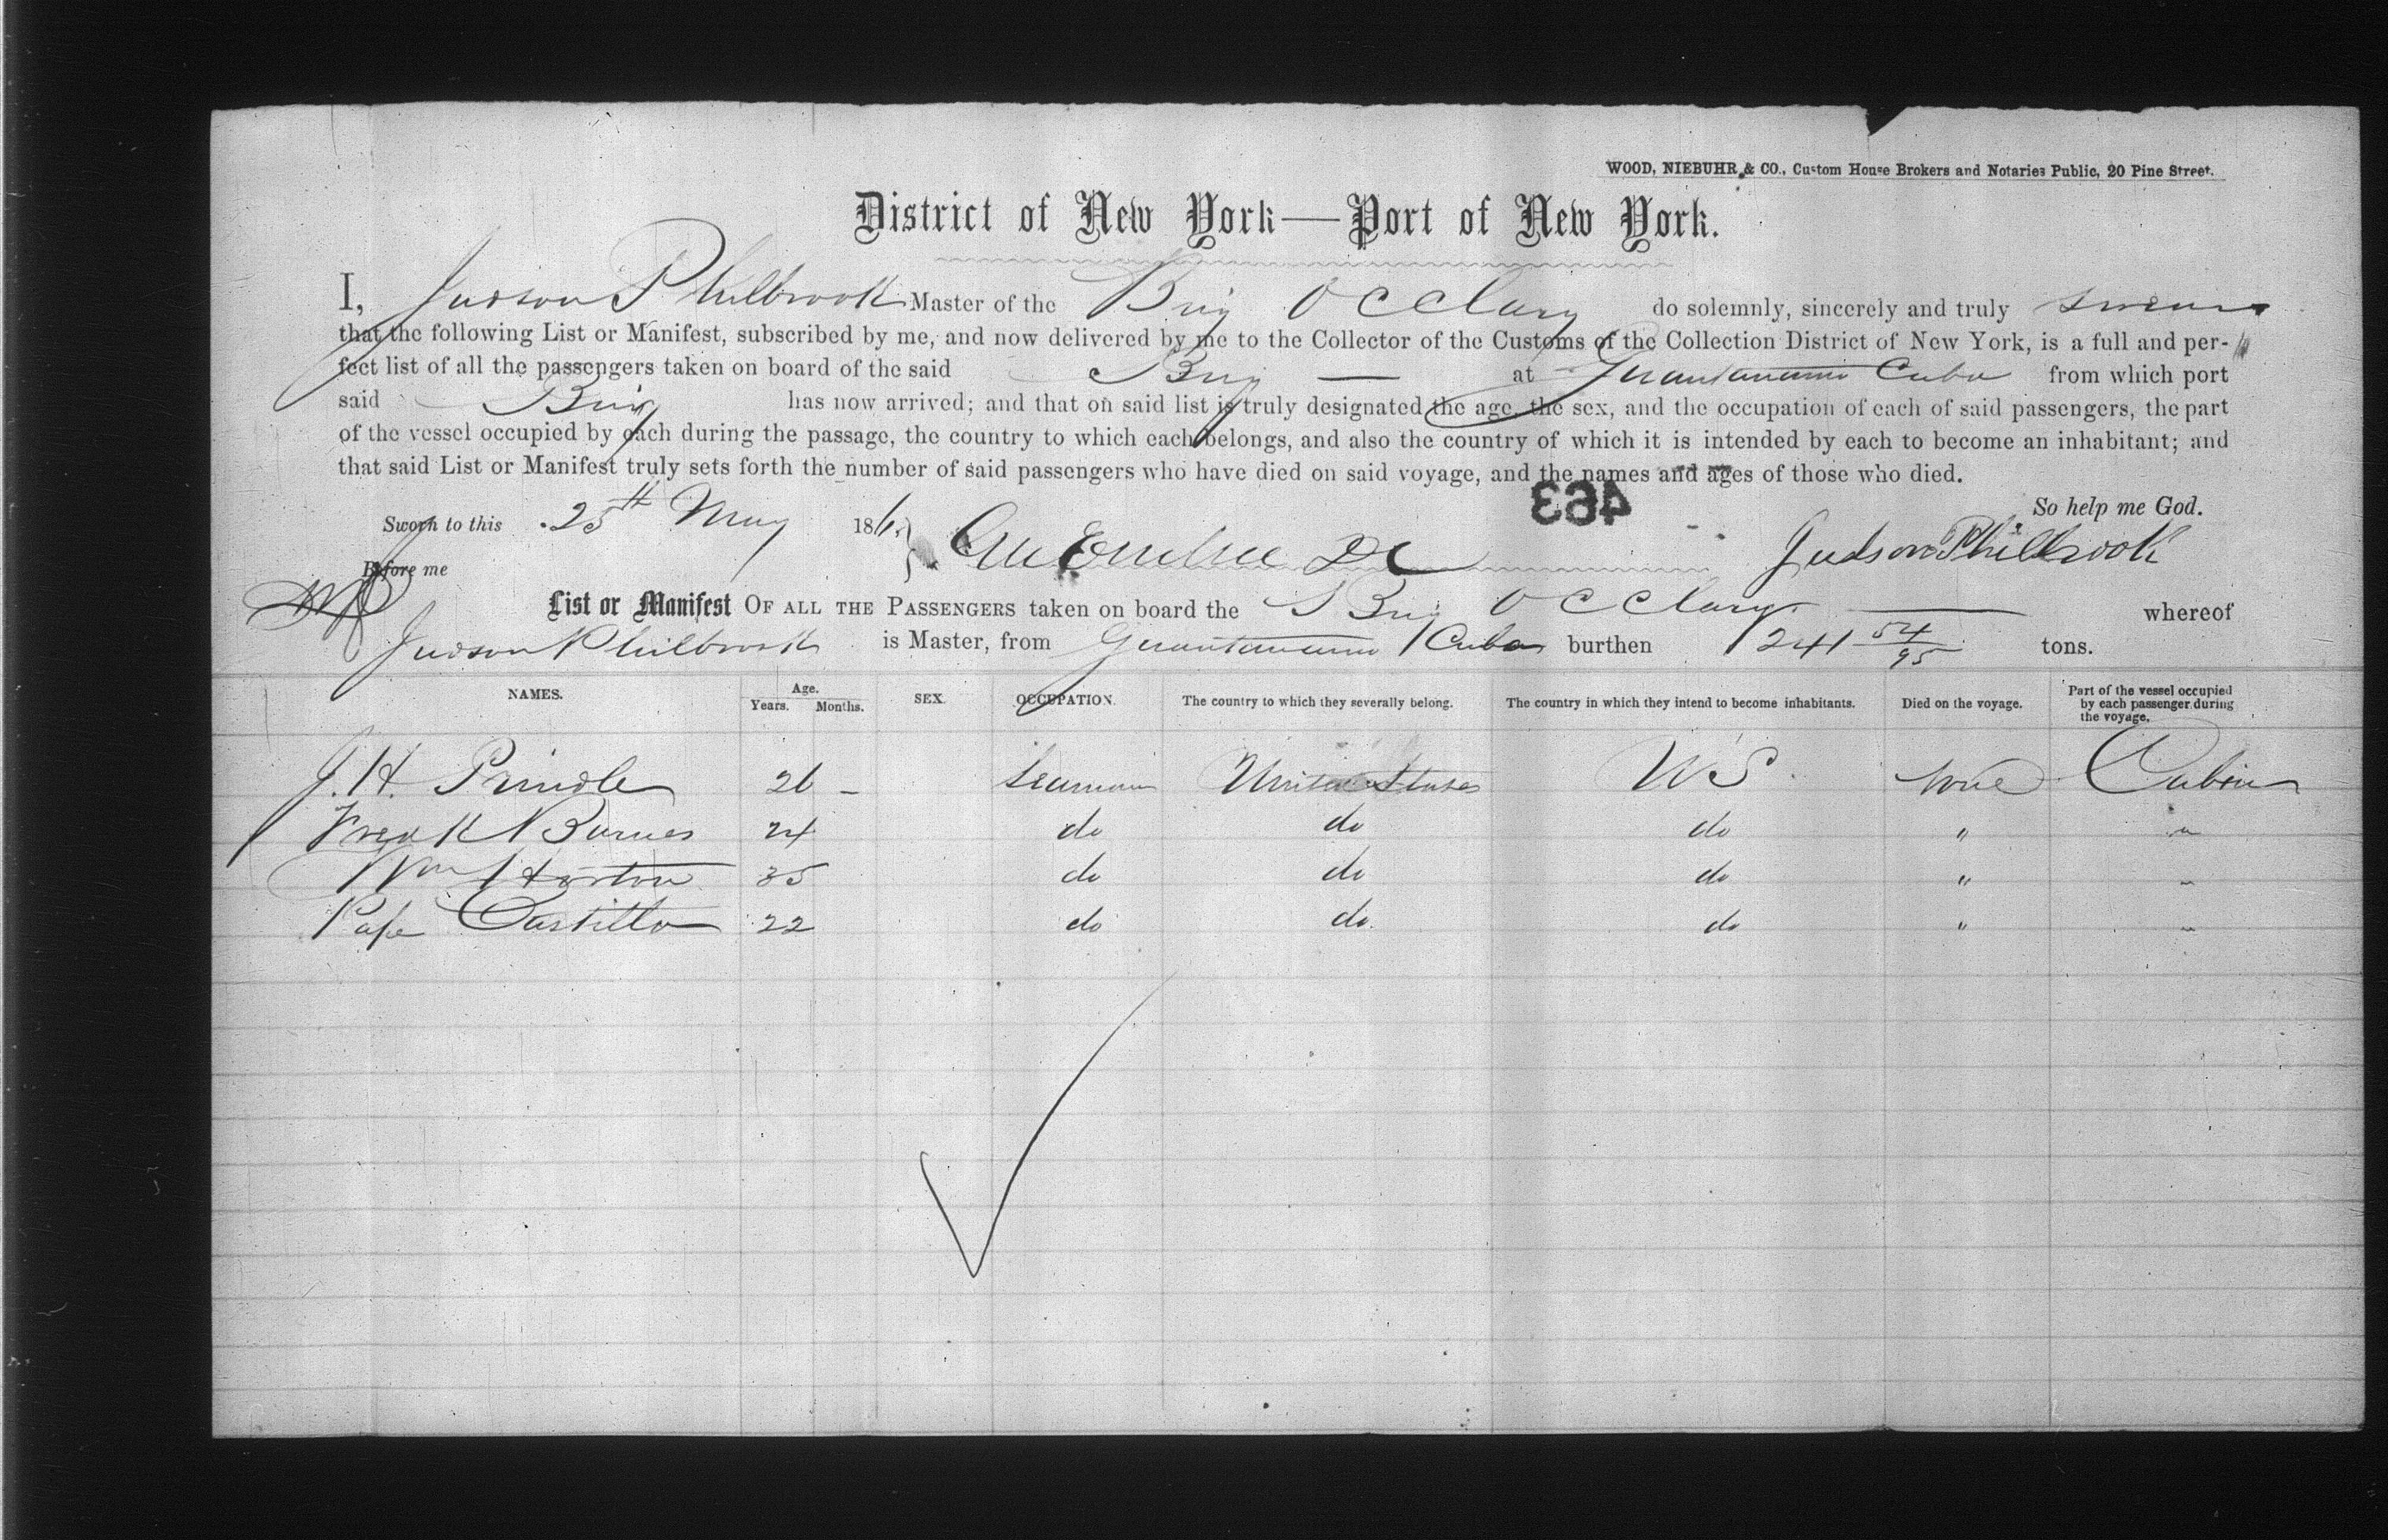 WOOD, NIEBUHR & CO., Custom House Brokers and Notaries Public, 20 Pine Street.
District of New York—Port of New York.
I, Judson Philbrook Master of the Brig O C Clary do solemnly, sincerely and truly swear
that the following List or Manifest, subscribed by me, and now delivered by me to the Collector of the Customs of the Collection District of New York, is a full and per-
fect list of all the passengers taken on board of the said Brig — at Guantanamo Cuba from which port
said Brig has now arrived; and that on said list is truly designated the age, the sex, and the occupation of each of said passengers, the part
of the vessel occupied by each during the passage, the country to which each belongs, and also the country of which it is intended by each to become an inhabitant; and
that said List or Manifest truly sets forth the number of said passengers who have died on said voyage, and the names and ages of those who died.
463
So help me God.
Sworn to this 25th May 186 Judson Philbrook
Before me
List or Manifest OF ALL THE PASSENGERS taken on board the Brig O C Clary — whereof
Judson Philbrook is Master, from Guantanamo Cuba burthen 241 54/95 tons.
NAMES. Age. Years. Months. SEX. OCCUPATION. The country to which they severally belong. The country in which they intend to become inhabitants. Died on the voyage. Part of the vessel occupied by each passenger during the voyage.
J. H. Prindle 26 – Seaman United States U S None Cabin
Fredk Barnes 24 do do do " "
Wm Horton 35 do do do " "
Castillo 22 do do do " "